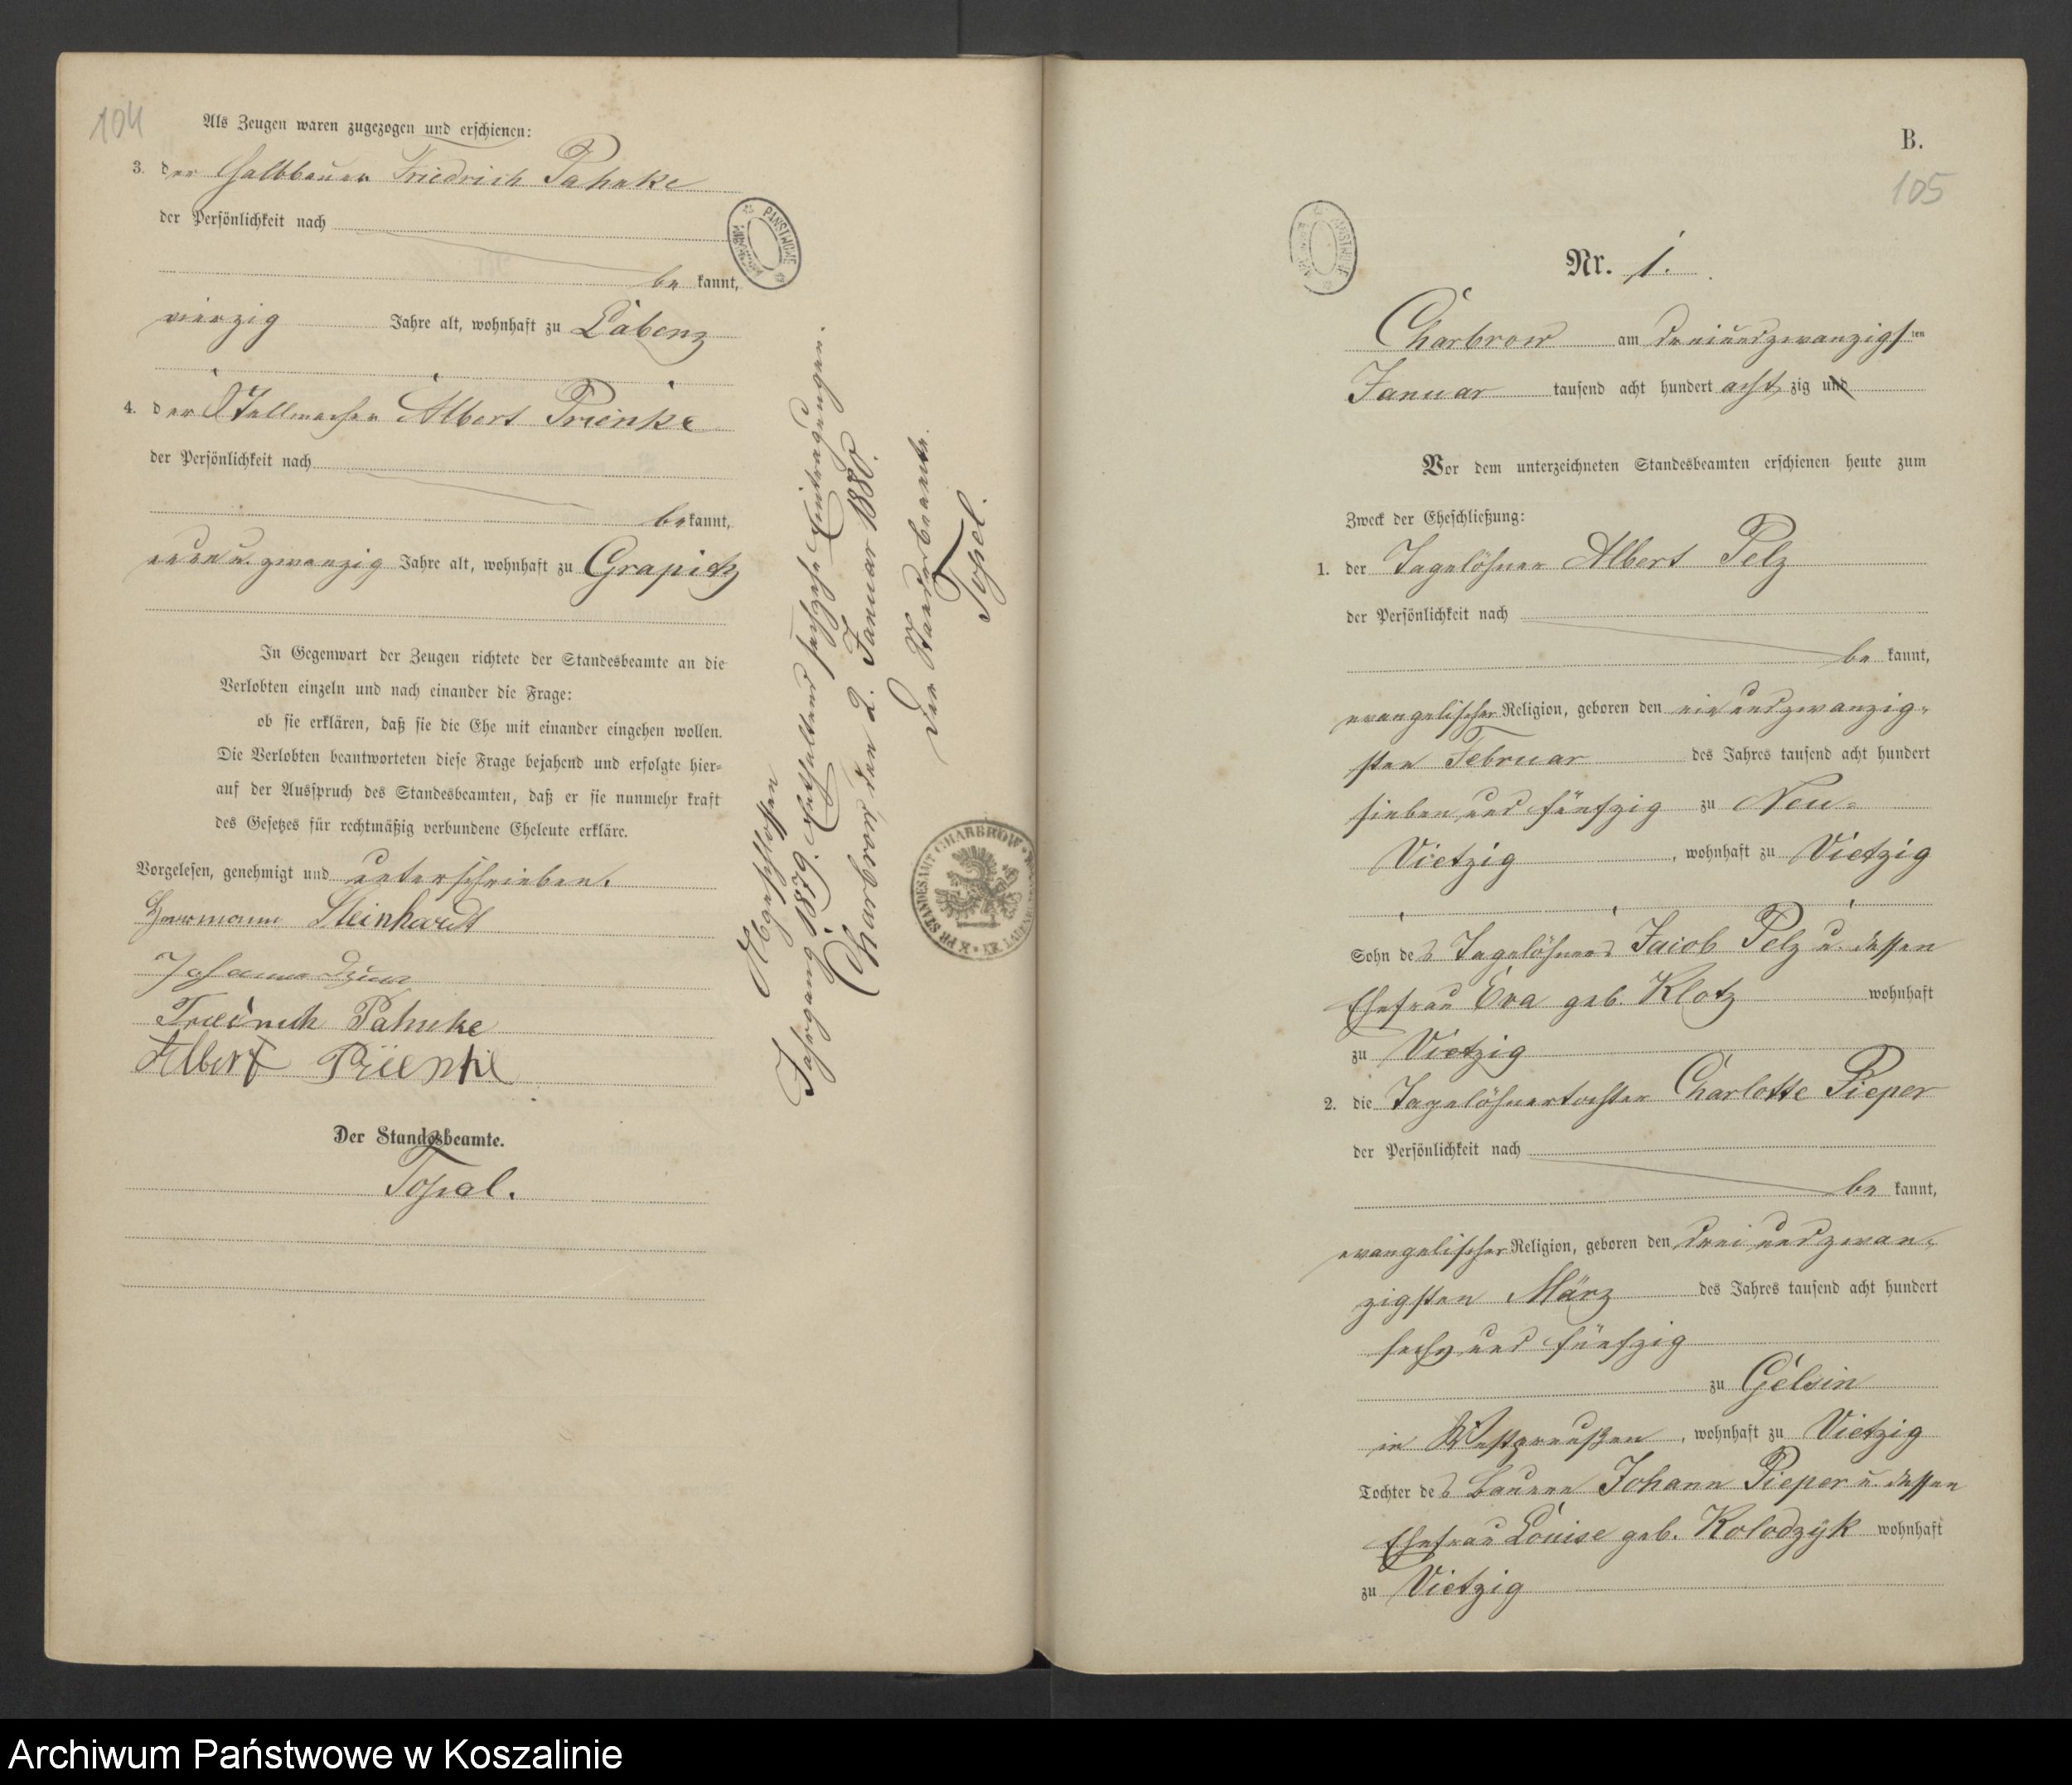 104
Als Zeugen waren zugezogen und erschienen:
3. der Halbbauer Friedrich Pahnke
der Persönlichkeit nach
be kannt,
vierzig Jahre alt, wohnhaft zu Labenz
4. der Stellmacher Albert Prienke
der Persönlichkeit nach
bekannt,
u. zwanzig Jahre alt, wohnhaft zu Grapitz
In Gegenwart der Zeugen richtete der Standesbeamte an die
Verlobten einzeln und nach einander die Frage:
ob sie erklären, daß sie die Ehe mit einander eingehen wollen.
Die Verlobten beantworteten diese Frage bejahend und erfolgte hier-
auf der Ausspruch des Standesbeamten, daß er sie nunmehr kraft
des Gesetzes für rechtmäßig verbundene Eheleute erkläre.
Vorgelesen, genehmigt und unterschrieben.
Herrmann Steinhardt
Johanna
Friedrich Pahnke
Albert Prienke
Der Standesbeamte.
Topel.
Abgeschlossen
Jahrgang 1879. Enthaltend sechzehn Eintragungen.
Charbrow den 2. Januar 1880.
Der Standesbeamte.
Topel.
PANSTWOWE
K. PR. STANDESAMT CHARBROW
B.
105
Nr. 1.
Charbrow am dreiundzwanzigsten
Januar tausend acht hundert achtzig und
Vor dem unterzeichneten Standesbeamten erschienen heute zum
Zweck der Eheschließung:
1. der Tagelöhner Albert Pelz
der Persönlichkeit nach
be kannt,
evangelischer Religion, geboren den einundzwanzig-
sten Februar des Jahres tausend acht hundert
sieben und fünfzig zu Neu-
Vietzig, wohnhaft zu Vietzig
Sohn des Tagelöhners Jacob Pelz u. dessen
Ehefrau Eva geb. Klotz wohnhaft
zu Vietzig
2. die Tagelöhnertochter Charlotte Pieper
der Persönlichkeit nach
be kannt,
evangelischer Religion, geboren den drei und zwan-
zigsten März des Jahres tausend acht hundert
sechs und fünfzig
zu Gelsin
in Westpreußen, wohnhaft zu Vietzig
Tochter des Bauern Johann Pieper u. dessen
Ehefrau Louise geb. Kolodzyk wohnhaft
zu Vietzig
Archiwum Państwowe w Koszalinie